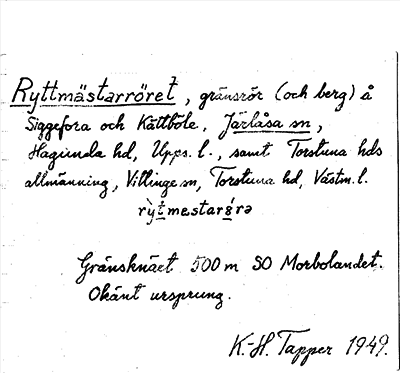 Ryttmästarröret, gränsrör (och berg) å
Siggefora och Kättböle, Järlåsa sn,
Hagunda hd, Upps. l., samt Torstuna hds
allmänning, Vittinge sn, Torstuna hd, Västm. l.
gränsknäet 500 m SO Morbolandet.
Okänt ursprung.
K.-H. Tapper 1949.